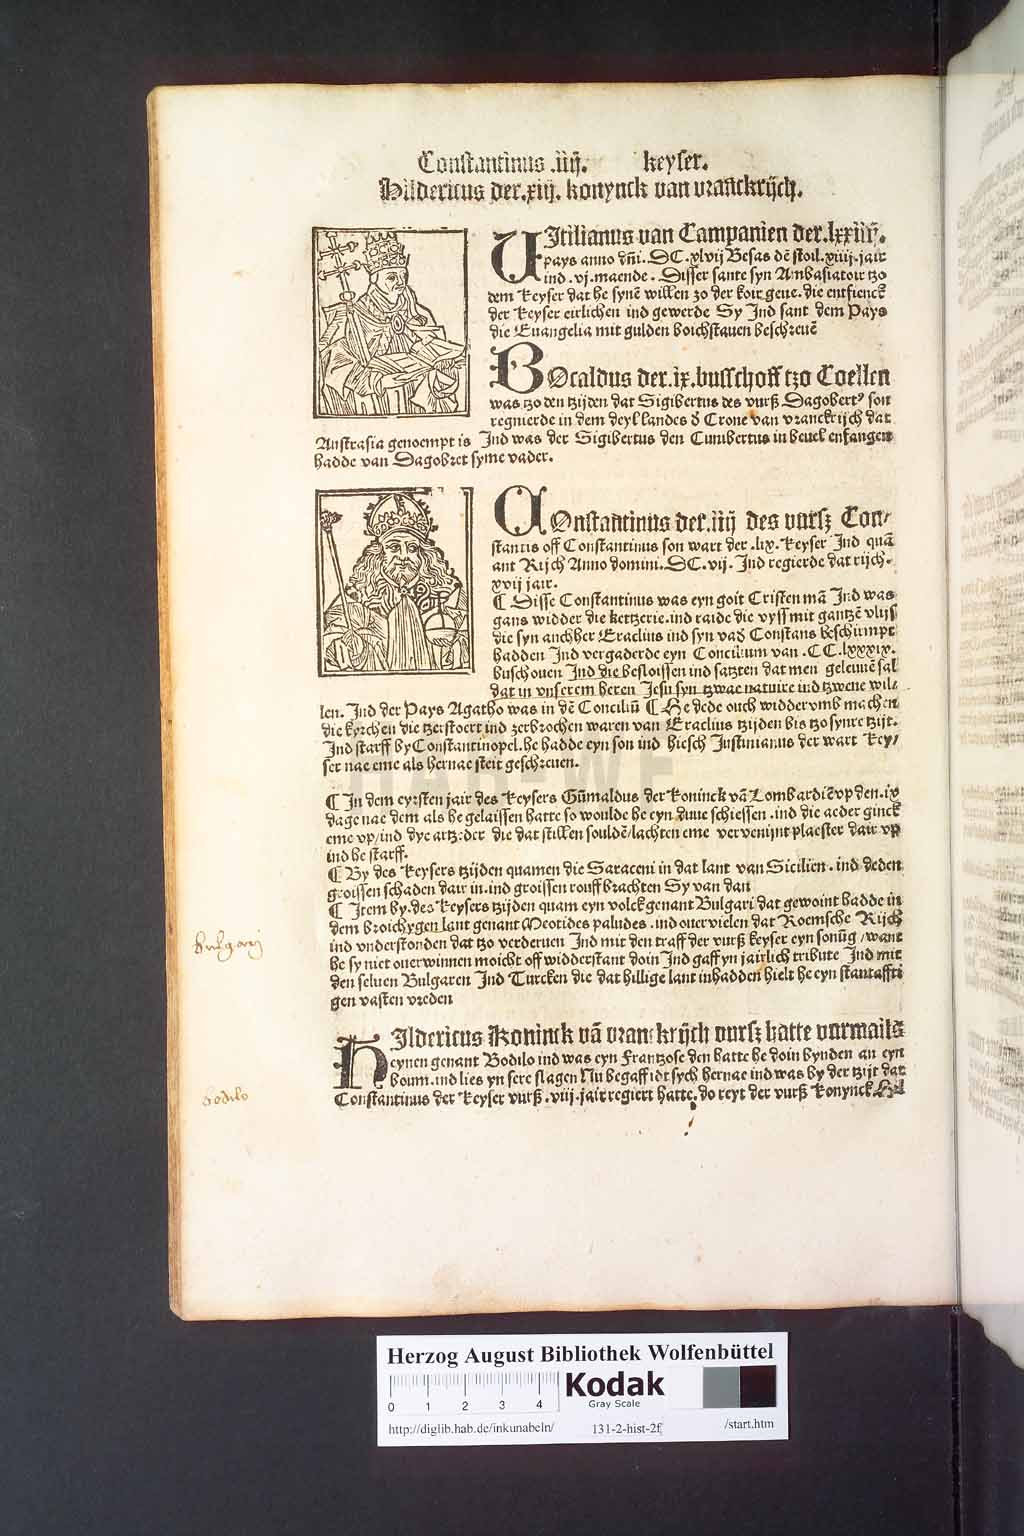 Constantinus .iiij. keyser.
Hildericus der .xiij. konynck van vranckrijch.
VItilianus van Campanien der .lxxiiij.
pays anno dñi. DC. xlvij Besas dē stoil. xiiij. jair
ind. vj. maende. Disser sante syn Ambasiatoir tzo
dem Keyser dat he synē willen zo der koir geue. die entfienck
der Keyser eirlichen ind gewerde Sy Ind sant dem Pays
die Euangelia mit gulden boichstauen beschreuē
BOcaldus der .ix. busschoff tzo Coellen
was tzo den tzijden dat Sigibertus des vurß Dagobertꝰ son
regnierde in dem deyl landes d̄ Crone van vranckrijch dat
Austrasia genoempt is Ind was der Sigibertus den Cunibertus in beuel enfangen
hadde van Dagobret syme vader.
COnstantinus der .iiij des vurß Con/
stantis off Constantinus son wart der .lix. Keyser Ind quā
ant Rijch Anno domini. DC. vij. Ind regierde dat rijch.
xvij jair.
¶ Disse Constantinus was eyn goit Cristen mā Ind was
gans widder die kettzerie. ind raide die vyss mit gantzē vlijs
die syn anchher Eraclius ind syn vad̄ Constans beschirmpt
hadden Ind vergaderde eyn Concilium van .CC. lxxxix.
buschouen Ind die besloissen ind satzten dat men geleuuē sal
dat in vnserem heren Jesu syn tzwae natuire ind tzwene wil/
len. Ind der Pays Agatho was in dē Conciliū ¶ He dede ouch widdervmb machen
die kyrchen die tzerstoert ind zerbrochen waren van Eraclius tzijden bis tzo synre tzijt.
Ind starff by Constantinopel. he hadde eyn son ind hiesch Justinianus der wart Key/
ser nae eme als hernae steit geschreuen.
¶ In dem eyrsten jair des Keysers Grimaldus der Koninck vā Lombardiē vp den .ix
dage nae dem als he gelaissen hatte so woulde he eyn duue schiessen. ind die aeder ginck
eme vp/ ind dye artzder die dat stillen souldē/ lachten eme vervenijnt plaester dair vp
ind he starff.
¶ By des Keysers tzijden quamen die Saraceni in dat lant van Sicilien. ind deden
groissen schaden dair in. ind groissen rouff brachten Sy van dan
¶ Item by des Keysers tzijden quam eyn volck genant Bulgari dat gewoint hadde in
dem broichygen lant genant Meotides paludes. ind ouervielen dat Roemsche Rijch
ind vnderstonden dat tzo verderuen Ind mit den traff der vurß keyser eyn sonūg/ want
he sy niet ouerwinnen moicht off widderstant doin Ind gaff yn jairlich tribute Ind mit
den seluen Bulgaren Ind Turcken die dat hillige lant inhadden hielt he eyn stantaffti
gen vasten vreden
bulgarj
HIldericus Koninck vā vranckrijch vurß hatte vurmails
eynen genant Bodilo ind was eyn Frantzose den hatte he doin bynden an eyn
boum. ind lies yn sere slagen Nu begaff idt sych hernae ind was by der tzijt dat
Constantinus der Keyser vurß. viij. jair regiert hatte. do reyt der vurß Konynck Hil
bodilo
Herzog August Bibliothek Wolfenbüttel
0 1 2 3 4
Kodak
Gray Scale
http://diglib.hab.de/inkunabeln/ 131-2-hist-2f /start.htm